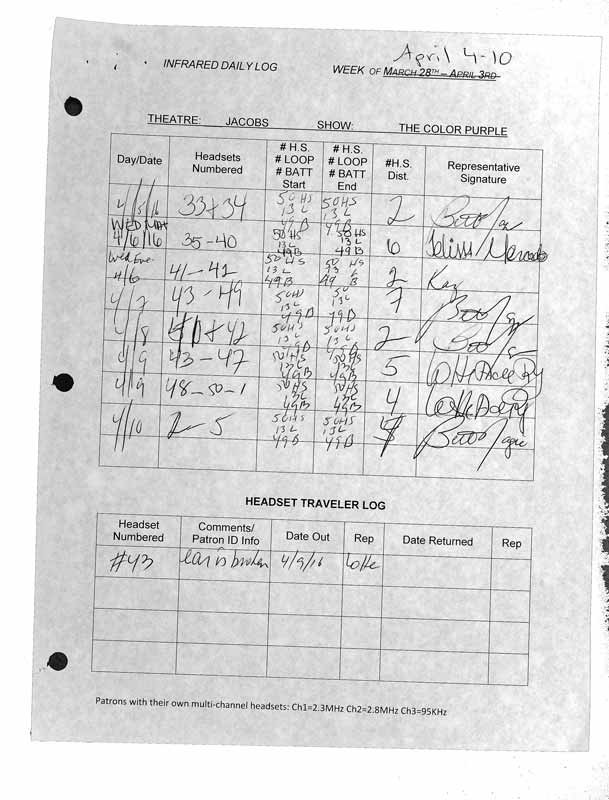 April 4-10
INFRARED DAILY LOG WEEK OF MARCH 28TH – APRIL 3RD
THEATRE: JACOBS SHOW: THE COLOR PURPLE
Day/Date Headsets Numbered # H.S. # LOOP # BATT Start # H.S. # LOOP # BATT End #H.S. Dist. Representative Signature
4/5/16 33+34 50HS 13L 49B 50HS 13L 49B 2
WED MAT 4/6/16 35-40 50HS 13L 49B 50HS 13L 49B 6
Wed Eve 4/6 41-42 50HS 13L 49B 50HS 13L 49B 2 Kay
4/7 43-49 50HS 13L 49B 50HS 13L 49B 7
4/8 41+42 50HS 13L 49B 50HS 13L 49B 2
4/9 43-47 50HS 13L 49B 50HS 13L 49B 5
4/9 48-50-1 50HS 13L 49B 50HS 13L 49B 4
4/10 2-5 50HS 13L 49B 50HS 13L 49B
HEADSET TRAVELER LOG
Headset Numbered Comments/ Patron ID Info Date Out Rep Date Returned Rep
#43 ear is broken 4/9/16 Lotte
Patrons with their own multi-channel headsets: Ch1=2.3MHz Ch2=2.8MHz Ch3=95KHz